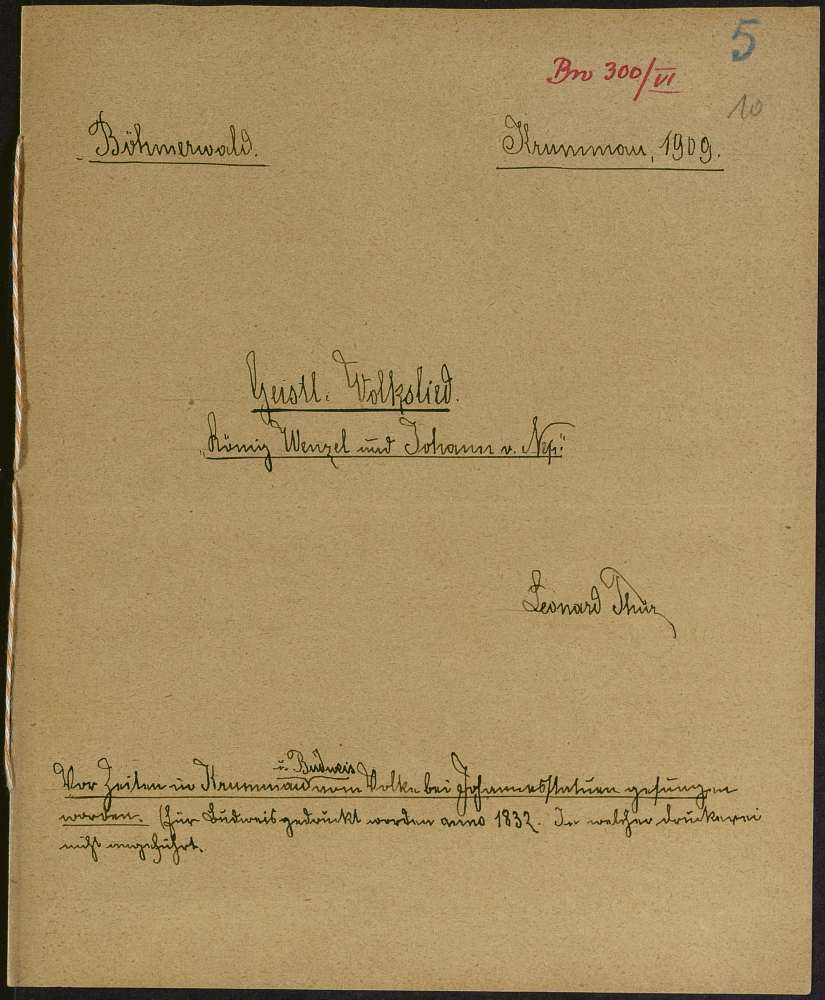 5
Bn 300/VI
10
Böhmerwald.
Krummau, 1909.
Geistl. Volkslied.
„König Wenzel und Johann v. Nep."
Leonard Thür
u. Budweis
Vor Zeiten in Krummau vom Volke bei Johannesstatuen gesungen
worden. (Für Budweis gedruckt worden anno 1832. In welcher Druckerei
nicht angeführt.